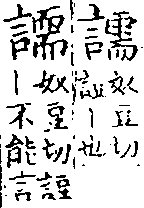 譳
奴豆切
丨也
奴豆切䛠
丨不能言